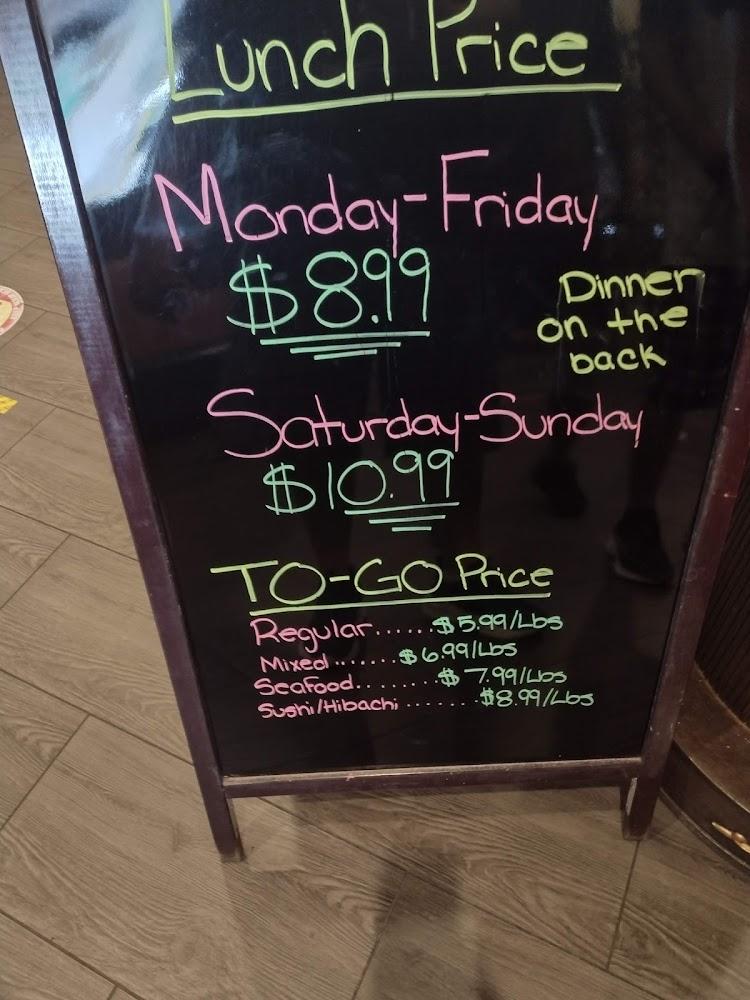 Lunch Price
Monday-Friday
$8.99
Dinner
on the
back
Saturday-Sunday
$10.99
TO-GO Price
Regular......$5.99/Lbs
Mixed.......$6.99/Lbs
Seafood........$7.99/Lbs
Sushi/Hibachi.......$8.99/Lbs